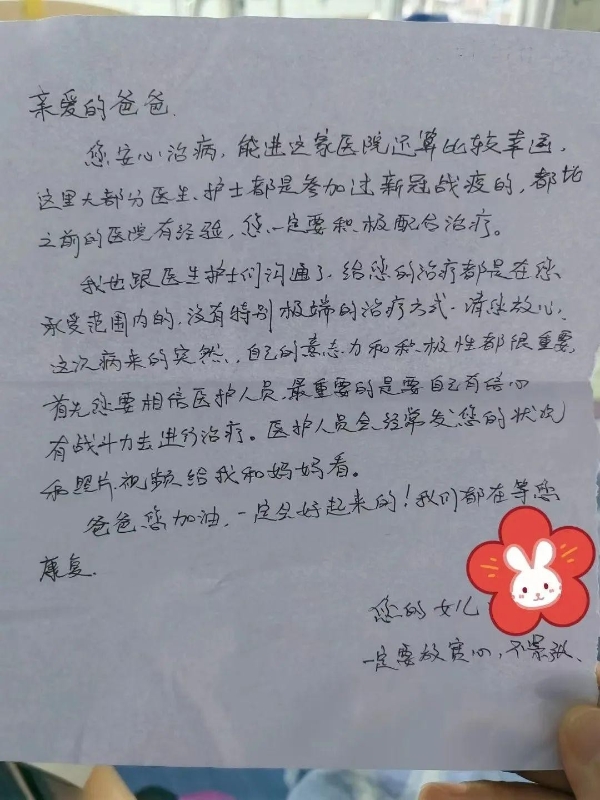 亲爱的爸爸.
您安心治病，能进这家医院还算比较幸运，
这里大部分医生、护士都是参加过新冠战疫的，都比
之前的医院有经验，您一定要积极配合治疗。
我也跟医生护士们沟通了，给您的治疗都是在您
承受范围内的，没有特别极端的治疗方式，请您放心，
这次病来的突然，自己的意志力和积极性都很重要，
首先您要相信医护人员，最重要的是要自己有信心
有战斗力去进行治疗。医护人员会经常发您的状况
和照片、视频给我和妈妈看。
爸爸您加油，一定会好起来的！我们都在等您
康复.
您的女儿
一定要放宽心，不紧张、